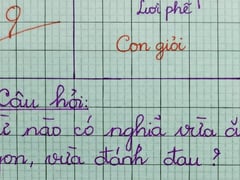 9
Lời phê
Con giỏi
Câu hỏi:
nào có nghĩa vừa
vừa đánh đau ?